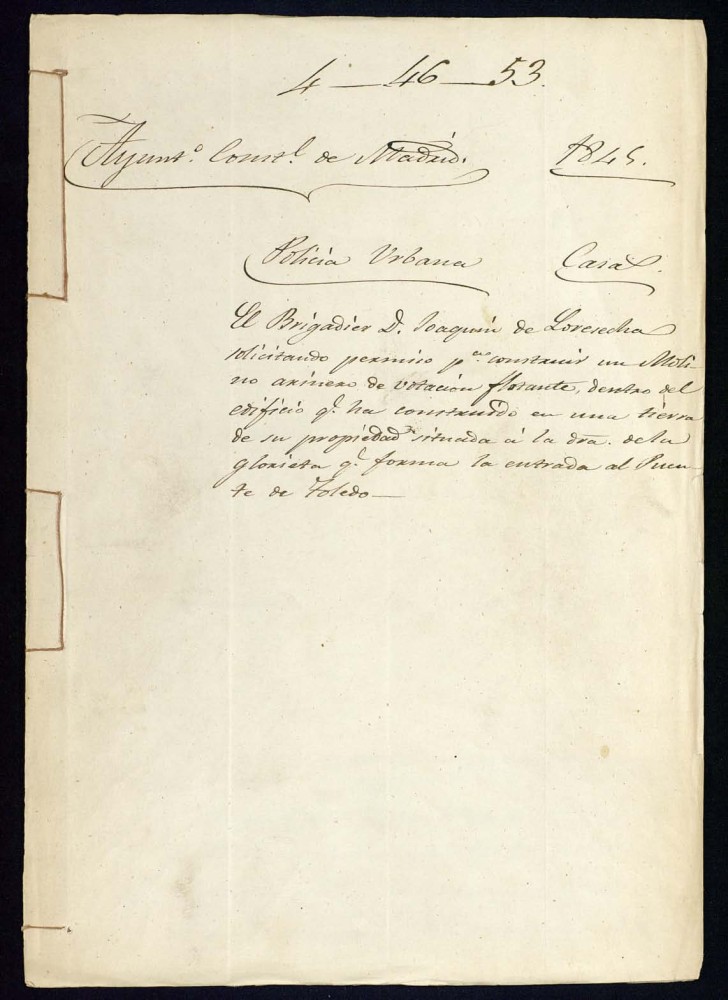 4 — 46 — 53.
Ayunt.º Const.l de Madrid. 1845.
Policia Urbana Casas.
El Brigadier D. Joaquin de
solicitando permiso p.a construir un Moli-
no arinero de votacion flotante, dentro del
edificio q.e ha construido en una tierra
de su propiedad situada á la dra. de la
glorieta q.e forma la entrada al Puen-
te de Toledo—